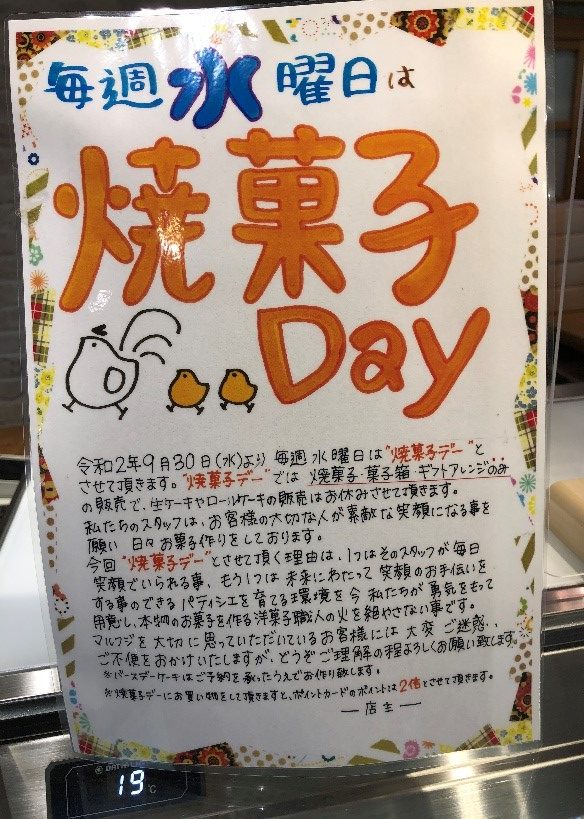 毎週水曜日は
焼菓子
Day
令和2年9月30日(水)より 毎週水曜日は"焼菓子デー"と
させて頂きます。"焼菓子デー"では 焼菓子・菓子箱・ギフトアレンジのみ
の販売で、生ケーキやロールケーキの販売はお休みさせて頂きます。
私たちのスタッフは、お客様の大切な人が素敵な笑顔になる事を
願い 日々お菓子作りをしております。
今回"焼菓子デー"とさせて頂く理由は、1つはそのスタッフが毎日
笑顔でいられる事、もう1つは未来にわたって笑顔のお手伝いを
する事のできるパティシエを育てる環境を今 私たちが勇気をもって
用意し、本物のお菓子を作る洋菓子職人の火を絶やさない事です。
マルフジを大切に思っていただいているお客様には大変ご迷惑、
ご不便をおかけいたしますが、どうぞご理解の程よろしくお願い致します。
※バースデーケーキはご予約を承ったうえでお作り致します。
※焼菓子デーにお買い物をして頂きますと、ポイントカードのポイントは2倍とさせて頂きます。
—店主—
19℃